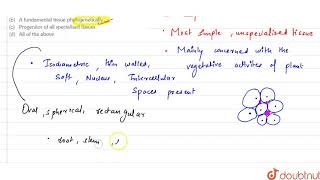 (b) A fundamental tissue phylogenetically
(c) Progenitor of all specialised tissues
(d) All of the above
• Most simple, unspecialised tissue
• Mainly concerned with the
vegetative activities of plant
• Isodiametric, thin walled,
Soft, Nucleus, Intercellular
Spaces present
Oval, spherical, rectangular
• root, stem,
doubtnut